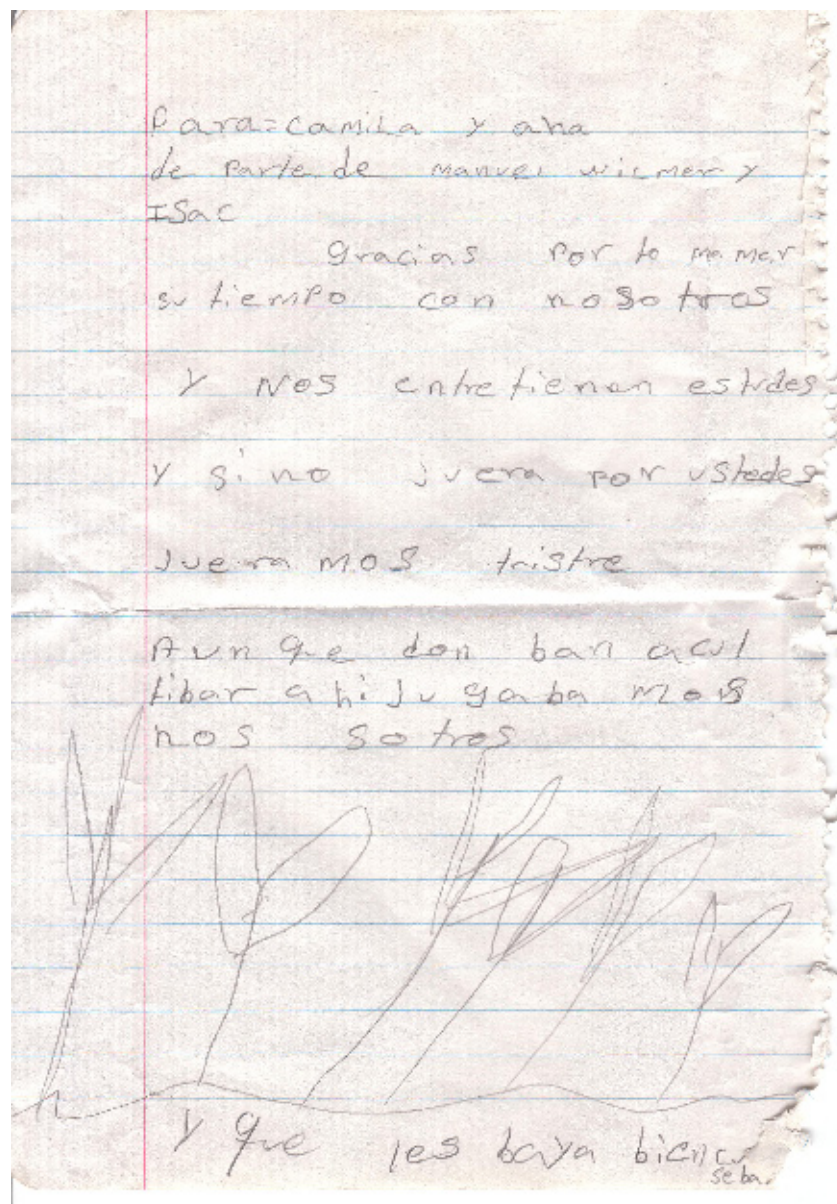 Para=camila y ana
de parte de manuel wilmer y
ISac
gracias por to ma mar
su tiempo con nosotros
y NOS entretienen estudes
y si no juera por ustedes
juera mos tristre
Aun que don ban acul
tibar ahi jugaba mos
nos sotros
y que les baya bien cu
se ba.